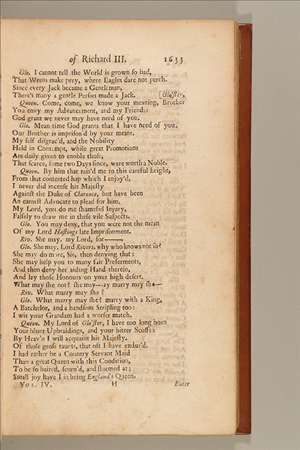 of Richard III. 1633
Glo. I cannot tell the World is grown so bad,
That Wrens make prey, where Eagles dare not perch.
Since every Jack became a Gentleman,
There's many a gentle Person made a Jack. [Glo'ster.
Queen. Come, come, we know your meaning, Brother
You envy my Advancement, and my Friends:
God grant we never may have need of you.
Glo. Mean time God grants that I have need of you.
Our Brother is imprison'd by your means,
My self disgrac'd, and the Nobility
Held in Contempt, while great Promotions
Are daily given to enoble those,
That scarce, some two Days since, were worth a Noble.
Queen. By him that rais'd me to this careful height,
From that contented hap which I enjoy'd,
I never did incense his Majesty
Against the Duke of Clarence, but have been
An earnest Advocate to plead for him.
My Lord, you do me shameful Injury,
Falsely to draw me in these vile Suspects.
Glo. You may deny, that you were not the mean
Of my Lord Hastings late Imprisonment.
Riv. She may, my Lord, for———
Glo. She may, Lord Rivers, why who knows not so?
She may do more, Sir, then denying that:
She may help you to many fair Preferments,
And then deny her aiding Hand therein,
And lay those Honours on your high desert.
What may she not? she may---ay marry may she—
Riv. What marry may she?
Glo. What marry may she? marry with a King,
A Batchelor, and a handsom Stripling too:
I wis your Grandam had a worser match.
Queen. My Lord of Glo'ster, I have too long born
Your blunt Upbraidings, and your bitter Scoffs:
By Heav'n I will acquaint his Majesty,
Of those gross taunts, that oft I have endur'd.
I had rather be a Country Servant Maid
Than a great Queen with this Condition,
To be so baited, scorn'd, and stormed at;
Small joy have I in being England's Queen.
Vol. IV. H Enter